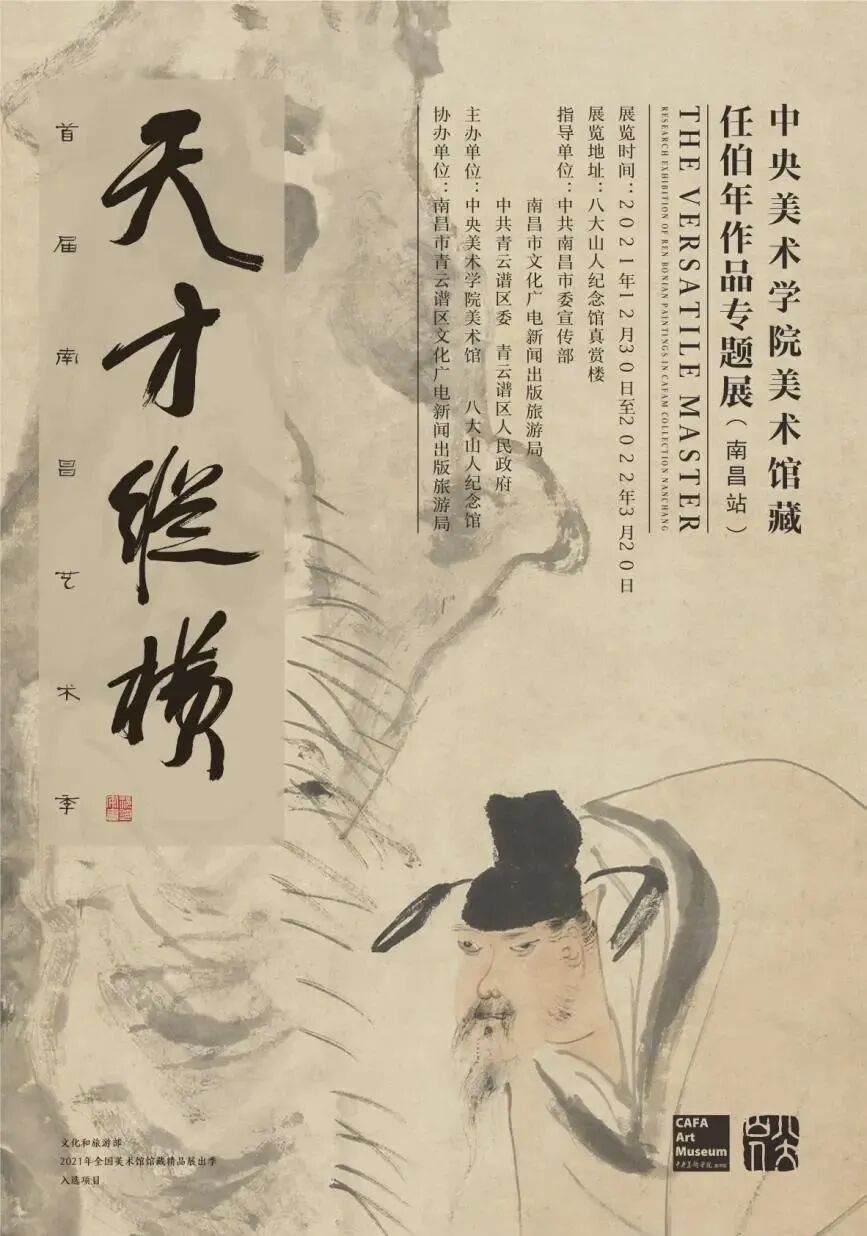 中央美术学院美术馆藏
任伯年作品专题展（南昌站）
THE VERSATILE MASTER
RESEARCH EXHIBITION OF REN BONIAN PAINTINGS IN CAFAM COLLECTION NANCHANG
展览时间：2021年12月30日至2022年3月20日
展览地址：八大山人纪念馆真赏楼
指导单位：中共南昌市委宣传部
南昌市文化广电新闻出版旅游局
中共青云谱区委 青云谱区人民政府
主办单位：中央美术学院美术馆 八大山人纪念馆
协办单位：南昌市青云谱区文化广电新闻出版旅游局
天才纵横
首届南昌艺术季
文化和旅游部
2021年全国美术馆馆藏精品展出季
入选项目
CAFA
Art
Museum
中央美术学院 美术馆